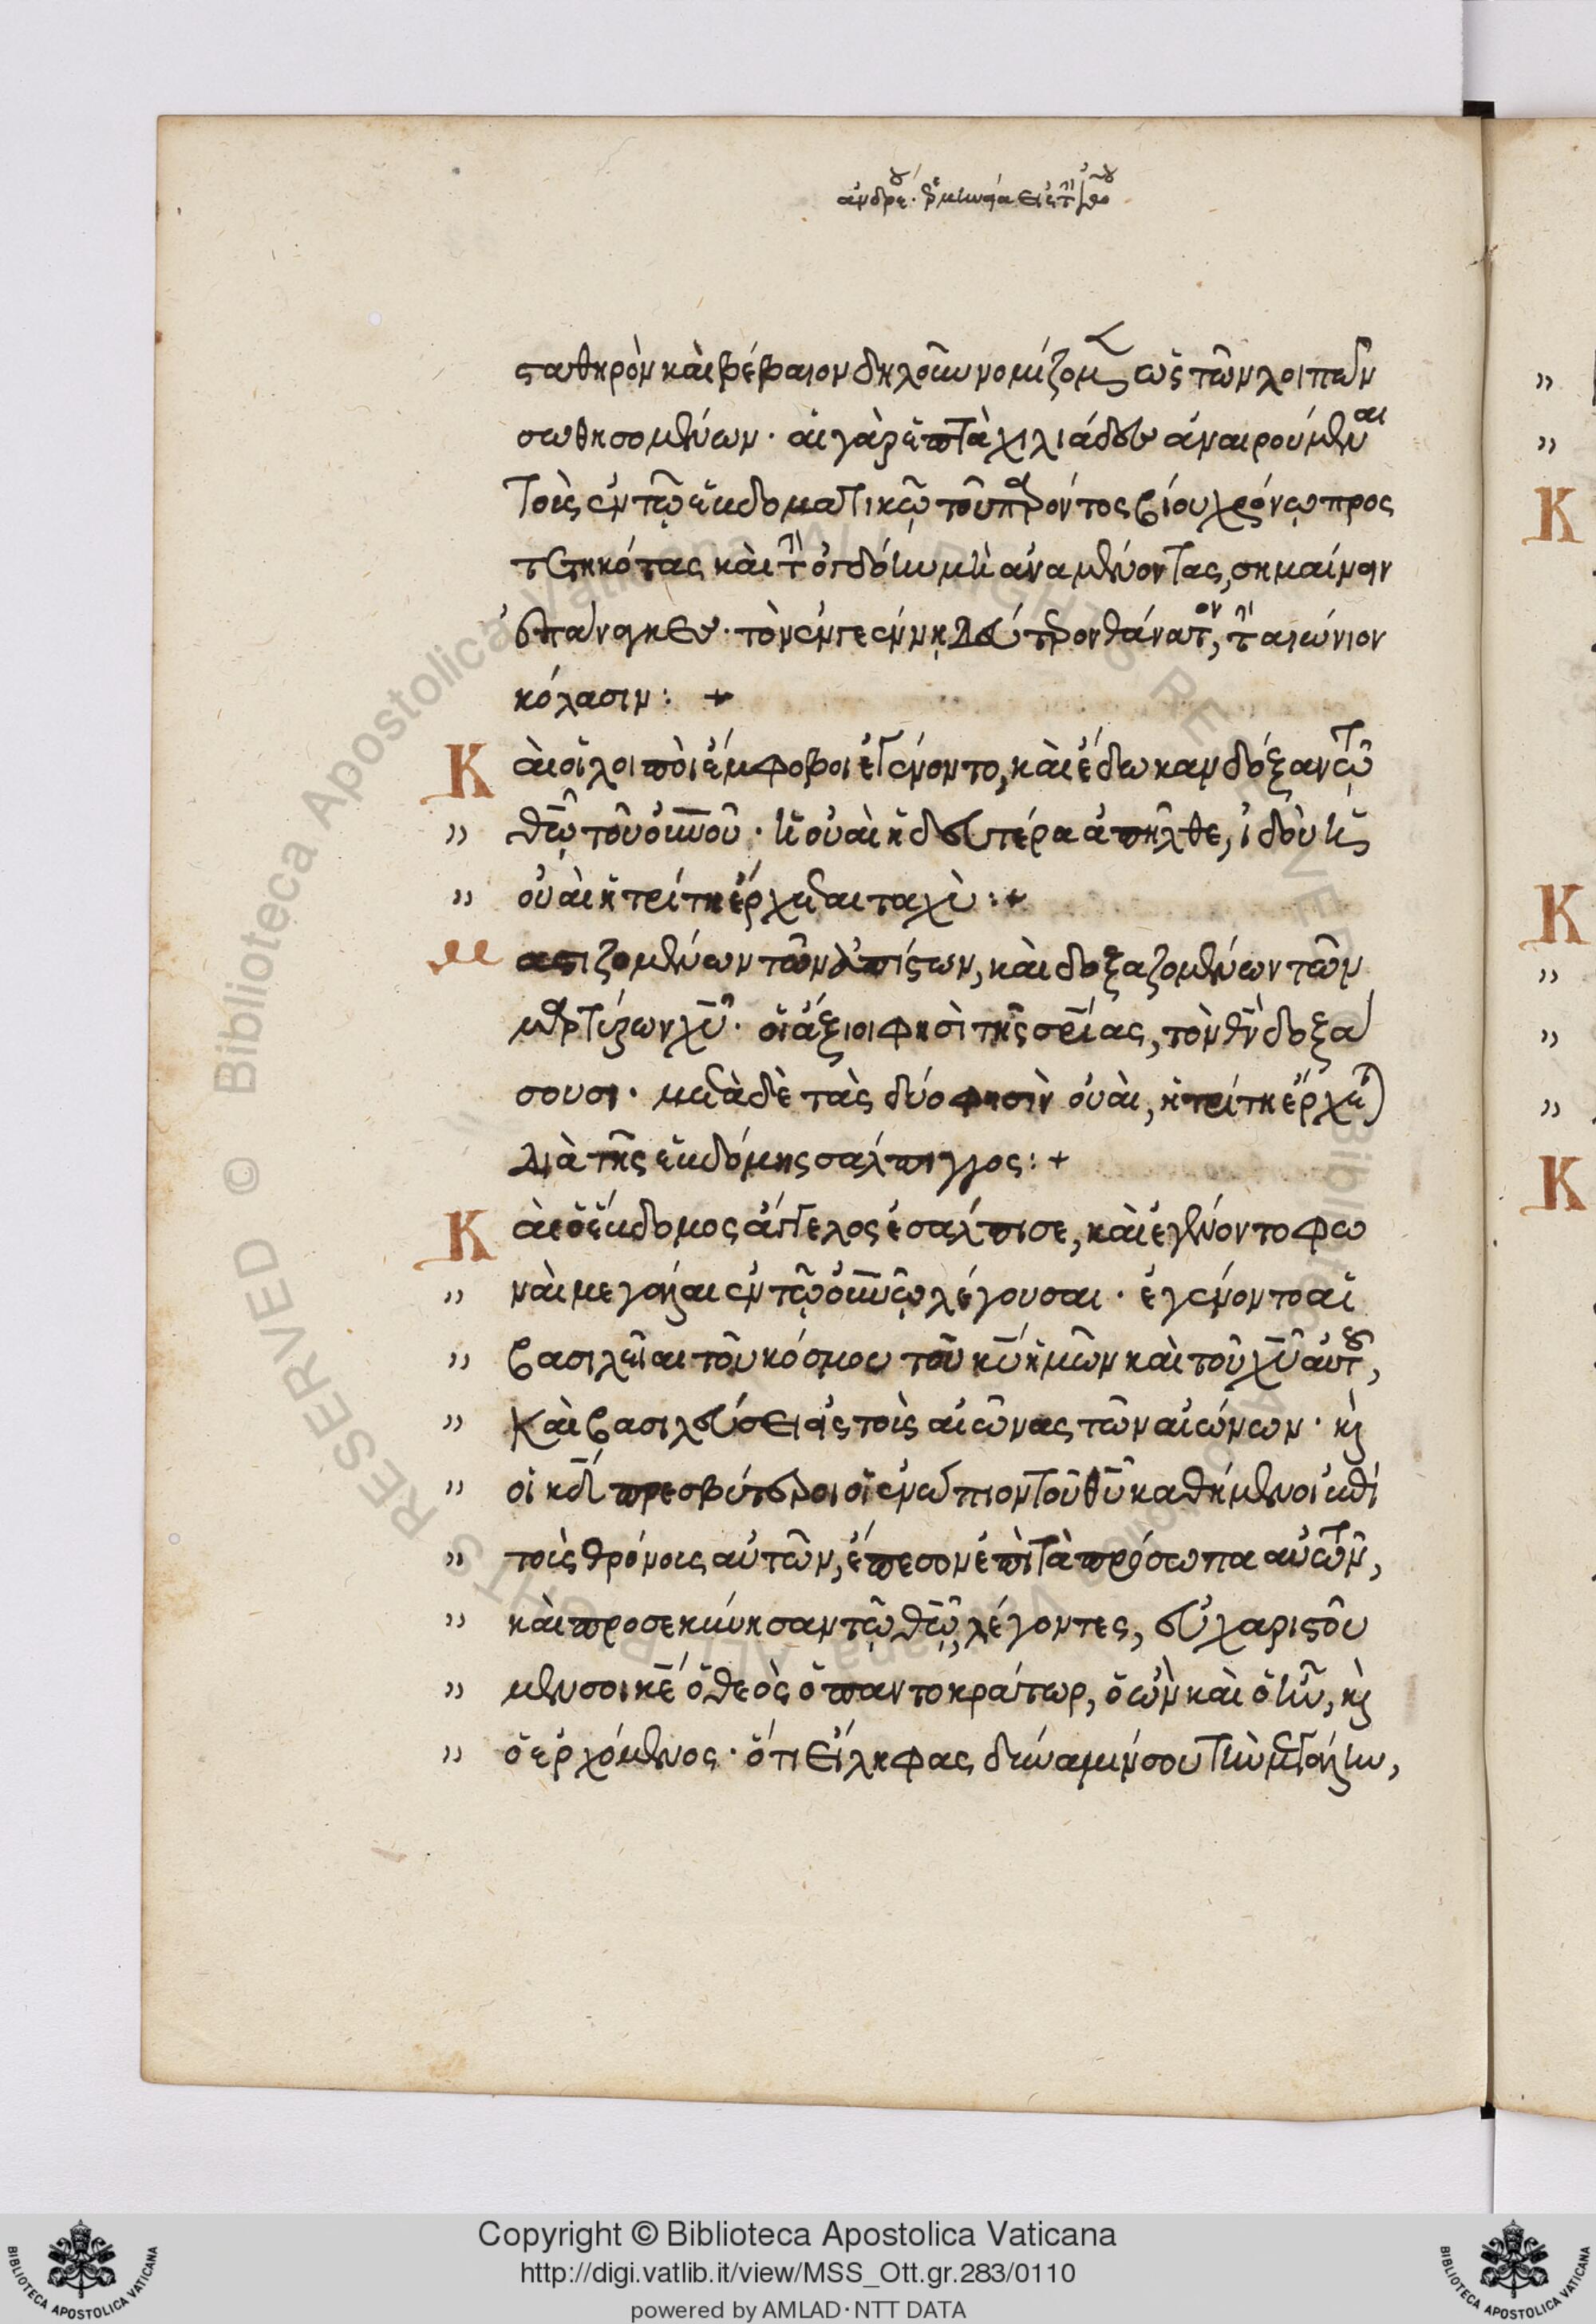 σταθηρὸν καὶ βέβαιον δηλοῦν νομίζομεν ὡς τῶν λοιπῶν
σωθησομένων· αἱ γὰρ ἑπτὰ χιλιάδες ἀναιρούμεναι
τοὺς ἐν τῷ ἑβδοματικῷ τοῦ παρόντος βίου χρόνῳ προς
τετηκότας καὶ τὴν ὀγδόην μὴ ἀναμένοντας, σημαίνειν
ἐπάναγκες· τὸν ἐν γεέννῃ δεύτερον θάνατον, τὴν αἰώνιον
κόλασιν: +
Καὶ οἱ λοιποὶ ἔμφοβοι ἐγένοντο, καὶ ἔδωκαν δόξαν τῷ
θῶ τοῦ οὐνοῦ· ἡ οὐαὶ ἡ δευτέρα ἀπῆλθε, ἰδοὺ ἡ
οὐαὶ ἡ τρίτη ἔρχεται ταχύ: +
Μαστιζομένων τῶν ἀπίστων, καὶ δοξαζομένων τῶν
μαρτύρων χυ· οἱ ἄξιοι φησὶ τῆς σρίας, τὸν θν δοξά
σουσι· μετὰ δὲ τὰς δύο φησὶν οὐαὶ, ἡ τρίτη ἔρχεται
διὰ τῆς ἑβδόμης σάλπιγγος: +
Καὶ ὁ ἕβδομος ἄγγελος ἐσάλπισε, καὶ ἐγένοντο φω
ναὶ μεγάλαι ἐν τῷ οὐνῷ λέγουσαι· ἐγένοντο αἱ
βασιλεῖαι τοῦ κόσμου τοῦ κυ ἡμῶν καὶ τοῦ χυ αὐτοῦ,
καὶ βασιλεύσει εἰς τοὺς αἰῶνας τῶν αἰώνων· κὶ
οἱ κδ πρεσβύτεροι οἱ ἐνώπιον τοῦ θυ καθήμενοι ἐπὶ
τοὺς θρόνους αὐτῶν, ἔπεσον ἐπὶ τὰ πρόσωπα αὐτῶν,
καὶ προσεκύνησαν τῷ θῶ, λέγοντες, εὐχαριστοῦ
μέν σοι κε ὁ θεὸς ὁ παντοκράτωρ, ὁ ὢν καὶ ὁ ἦν, κὶ
ὁ ἐρχόμενος· ὅτι εἴληφας δύναμίν σου τὴν μεγάλην,
Copyright © Biblioteca Apostolica Vaticana
http://digi.vatlib.it/view/MSS_Ott.gr.283/0110
powered by AMLAD · NTT DATA